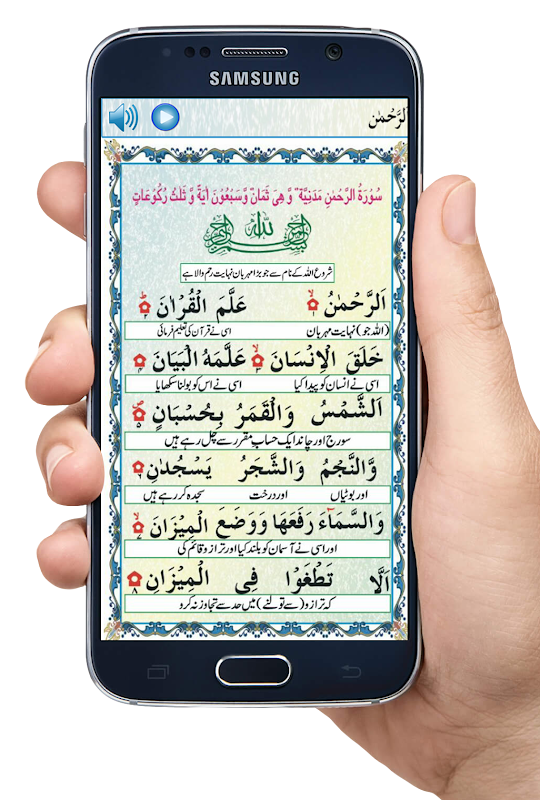 SAMSUNG
اَلرَّحْمٰن
سُوْرَةُ الرَّحْمٰنِ مَدَنِيَّةٌ وَّ هِىَ ثَمَانٌ وَّسَبْعُوْنَ اٰيَةً وَّ ثَلٰثُ رُكُوْعَاتٍ
بسم الله الرحمن الرحيم
شروع اللہ کے نام سے جو بڑا مہربان نہایت رحم والا ہے
اَلرَّحْمٰنُ ۙ۱ عَلَّمَ الْقُرْاٰنَ ؕ۲
(اللہ جو) نہایت مہربان اسی نے قرآن کی تعلیم فرمائی
خَلَقَ الْاِنْسَانَ ۙ۳ عَلَّمَهُ الْبَيَانَ ۴
اسی نے انسان کو پیدا کیا اسی نے اس کو بولنا سکھایا
اَلشَّمْسُ وَالْقَمَرُ بِحُسْبَانٍ ۵
سورج اور چاند ایک حساب مقرر سے چل رہے ہیں
وَّالنَّجْمُ وَالشَّجَرُ يَسْجُدٰنِ ۶
اور بوٹیاں اور درخت سجدہ کر رہے ہیں
وَالسَّمَآءَ رَفَعَهَا وَوَضَعَ الْمِيْزَانَ ۙ۷
اور اسی نے آسمان کو بلند کیا اور ترازو قائم کی
اَلَّا تَطْغَوْا فِى الْمِيْزَانِ ۸
کہ ترازو (سے تولنے) میں حد سے تجاوز نہ کرو